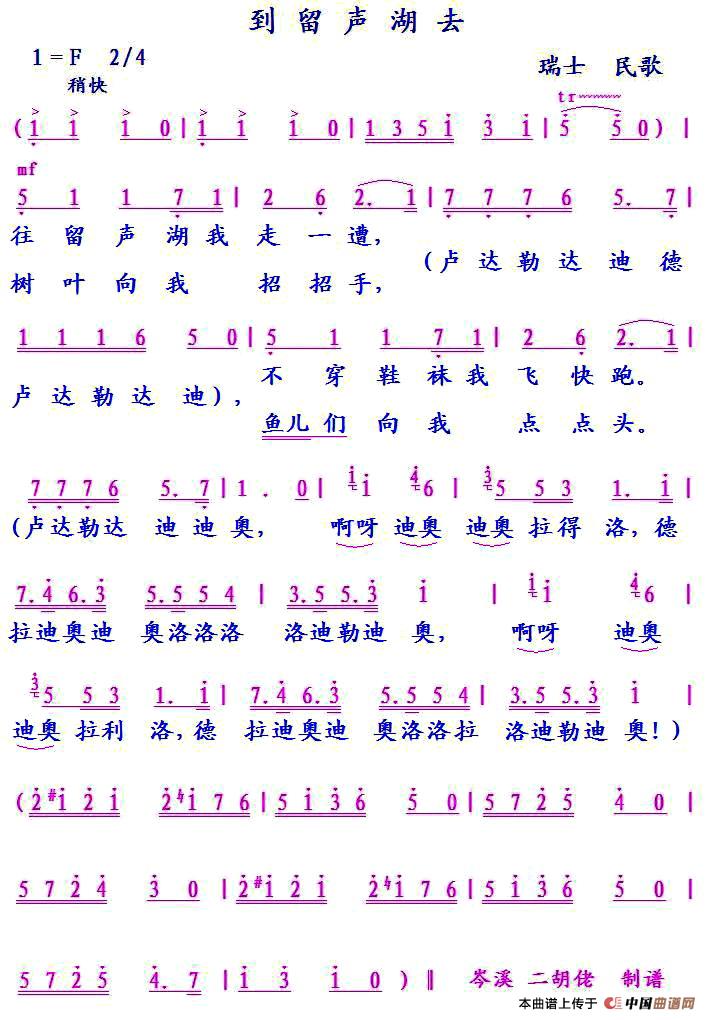 到留声湖去
1=F 2/4
瑞士 民歌
稍快
tr
( 1 1 1 0 | 1 1 1 0 | 1 3 5 1 3 1 | 5 5 0 ) |
mf
5 1 1 7 1 | 2 6 2. 1 | 7 7 7 6 5. 7 |
往留声湖我走一遭,
(卢达勒达迪德
树叶向我招招手,
1 1 1 6 5 0 | 5 1 1 7 1 | 2 6 2. 1 |
不穿鞋袜我飞快跑。
卢达勒达迪),
鱼儿们向我点点头。
7 7 7 6 5. 7 | 1. 0 | 1 1 4 6 | 3 5 5 3 1. 1 |
(卢达勒达迪迪奥, 啊呀迪奥迪奥拉得洛,德
7. 4 6. 3 5. 5 5 4 | 3. 5 5. 3 1 | 1 1 4 6 |
拉迪奥迪奥洛洛洛洛迪勒迪奥, 啊呀迪奥
3 5 5 3 1. 1 | 7. 4 6. 3 5. 5 5 4 | 3. 5 5. 3 1 |
迪奥拉利洛,德拉迪奥迪奥洛洛拉洛迪勒迪奥!)
( 2 #1 2 1 2 ♮1 7 6 | 5 1 3 6 5 0 | 5 7 2 5 4 0 |
5 7 2 4 3 0 | 2 #1 2 1 2 ♮1 7 6 | 5 1 3 6 5 0 |
5 7 2 5 4. 7 | 1 3 1 0 ) ‖ 岑溪 二胡佬 制谱
本曲谱上传于 中国曲谱网